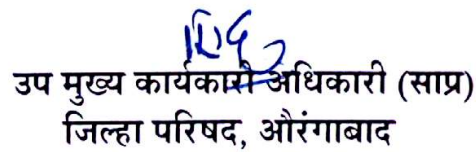 उप मुख्य कार्यकारी अधिकारी (साप्र)
जिल्हा परिषद, औरंगाबाद